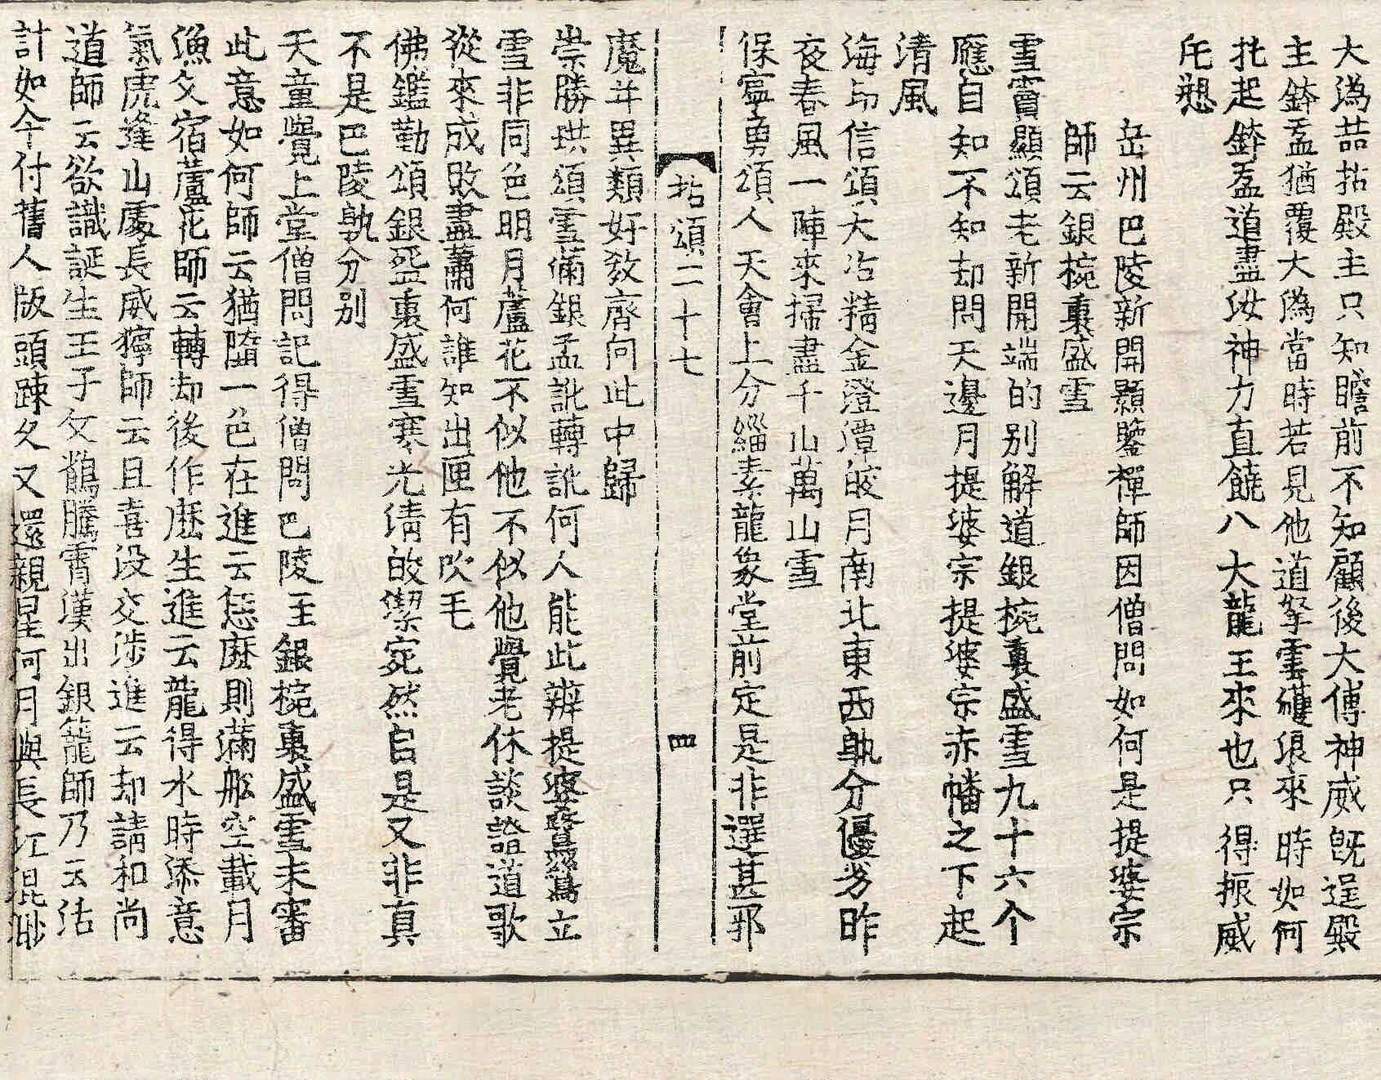 大潙喆拈殿主只知瞻前不知顧後大傅神威旣逞殿
主鉢盂猶覆大潙當時若見他道拏雲攫浪來時如何
托起鉢盂道盡汝神力直饒八大龍王來也只得振威
乇愬
岳州巴陵新開顥鑒禪師因僧問如何是提婆宗
師云銀椀裏盛雪
雪竇顯頌老新開端的别解道銀椀裏盛雪九十六个
應自知不知却問天邊月提婆宗提婆宗赤幡之下起
清風
海印信頌大冶精金澄潭皎月南北東西孰分優劣昨
夜春風一陣來掃盡千山萬山雪
保寧勇頌人天會上分緇素龍象堂前定是非選甚邪
拈頌二十七 四
魔并異類好教齊向此中歸
崇勝珙頌雪滿銀盂訛轉訛何人能此辨提婆鷺鷥立
雪非同色明月蘆花不似他不似他覺老休談證道歌
從來成敗盡蕭何誰知出匣有吹毛
佛鑑勤頌銀盌裏盛雪寒光淸皎潔宛然自是又非真
不是巴陵孰分别
天童覺上堂僧問記得僧問巴陵王銀椀裏盛雪未審
此意如何師云猶墮一色在進云恁麽則滿舩空載月
漁父宿蘆花師云轉却後作麽生進云龍得水時添意
氣虎逢山處長威獰師云且喜没交涉進云却請和尚
道師云欲識誕生王子父鶴騰霄漢出銀籠師乃云活
計如今付舊人版頭踈久又還親星河月與長江混渺